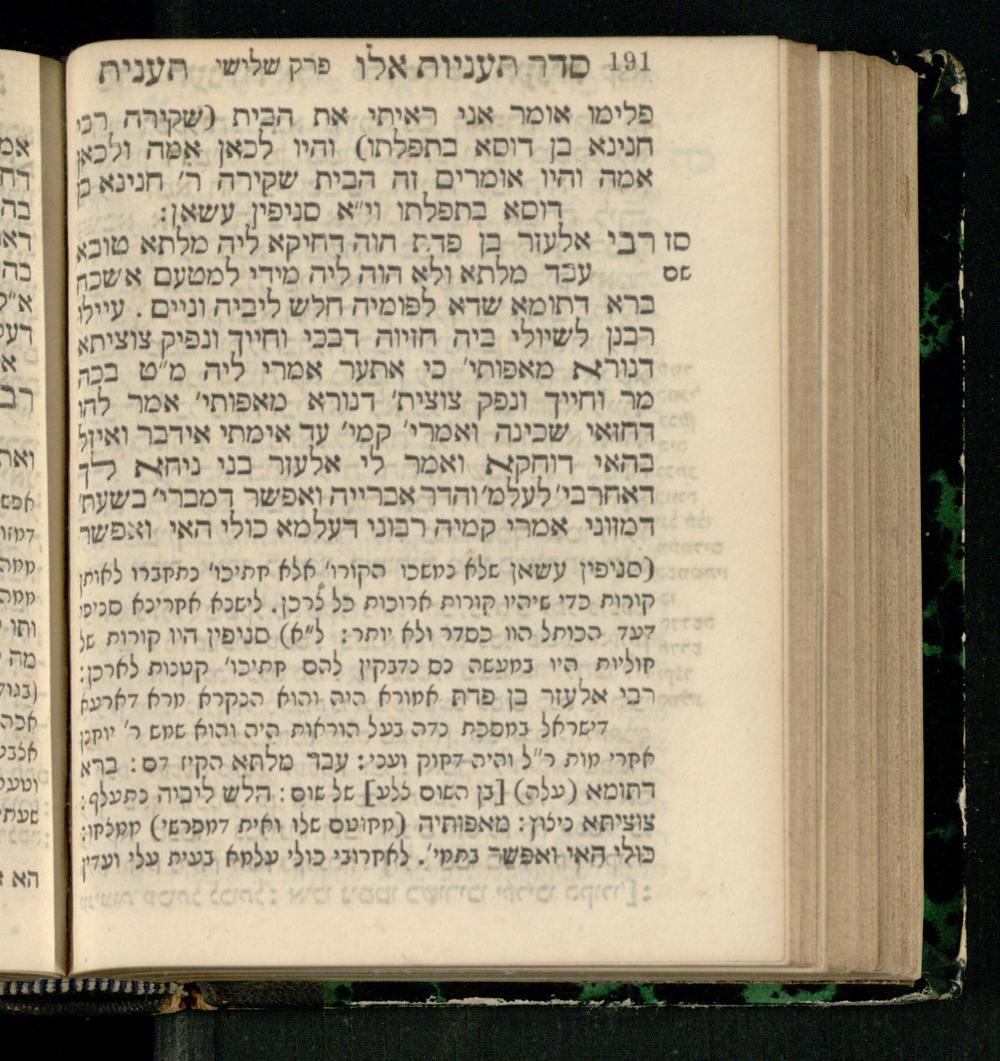 191 סדר תעניות אלו פרק שלישי תענית
פלימו אומר אני ראיתי את הבית (שקירה רבי
חנינא בן דוסא בתפלתו) והיו לכאן אמה ולכאן
אמה והיו אומרים זה הבית שקירה ר׳ חנינא בן
דוסא בתפלתו וי״א סניפין עשאן:
סז רבי אלעזר בן פדת הוה דחיקא ליה מלתא טובא
שם עבד מלתא ולא הוה ליה מידי למטעם אשכח
ברא דתומא שדא לפומיה חלש ליביה וניים . עיילו
רבנן לשיולי ביה חזיוה דבכי וחייך ונפיק צוציתא
דנורא מאפותי׳ כי אתער אמרי ליה מ״ט בכה
מר וחייך ונפק צוצית׳ דנורא מאפותי׳ אמר להו
דחזאי שכינה ואמרי׳ קמי׳ עד אימתי אידבר ואיזל
בהאי דוחקא ואמר לי אלעזר בני ניחא לך
דאחרבי׳ לעלמ׳ והדר אברייה ואפשר דמברי׳ בשעת׳
דמזוני אמרי קמיה רבוני דעלמא כולי האי ואפשר
(סניפין עשאן שלא נמשכו הקורו׳ אלא חתיכו׳ נתחברו לאותן
קורות כדי שיהיו קורות ארוכות כל צרכן. לישנא אחרינא סניפי
דעד הכותל הוו כסדר ולא יותר: ל״א) סניפין היו קורות של
חוליות היו במעשה נס נדבקין להם חתיכו׳ קטנות לארכן:
רבי אלעזר בן פדת אמורא היה והוא הנקרא מרא דארעא
דישראל במסכת נדה בעל הוראות היה והוא שמש ר׳ יוחנן
אחרי מות ר״ל והיה דחוק ועני: עבד מלתא הקיז דם: ברא
דתומא (עלה) [בן השום צלע] של שום: חלש ליביה נתעלף:
צוציתא ניצוץ: מאפותיה (מקועם שלו ואית דמפרשי) ממצחו:
כולי האי ואפשר בתמי׳. לאחרובי כולי עלמא בעית עלי ועדין